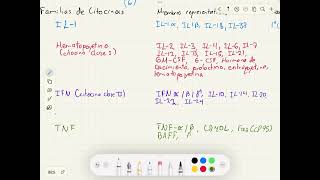 Familias de Citocinas
(6)
Miembros representati
IL-1
IL-1α, IL1β, IL-18, IL-33
1º(
Hematopoyetina
(citocina clase I)
IL-2, IL-3, IL-4, IL-6, IL-7
IL-12, IL-13, IL-15, IL-21,
GM-CSF, G-CSF, Hormona de
crecimiento, prolactina, eritropoyetina,
hematopoyetina
IFN (citocina clase II)
IFN α/β/γ, IL-10, IL-19, IL-20
IL-22, IL-24
TNF
TNF-α/β, CD40L, Fas(CD95)
BAFF,